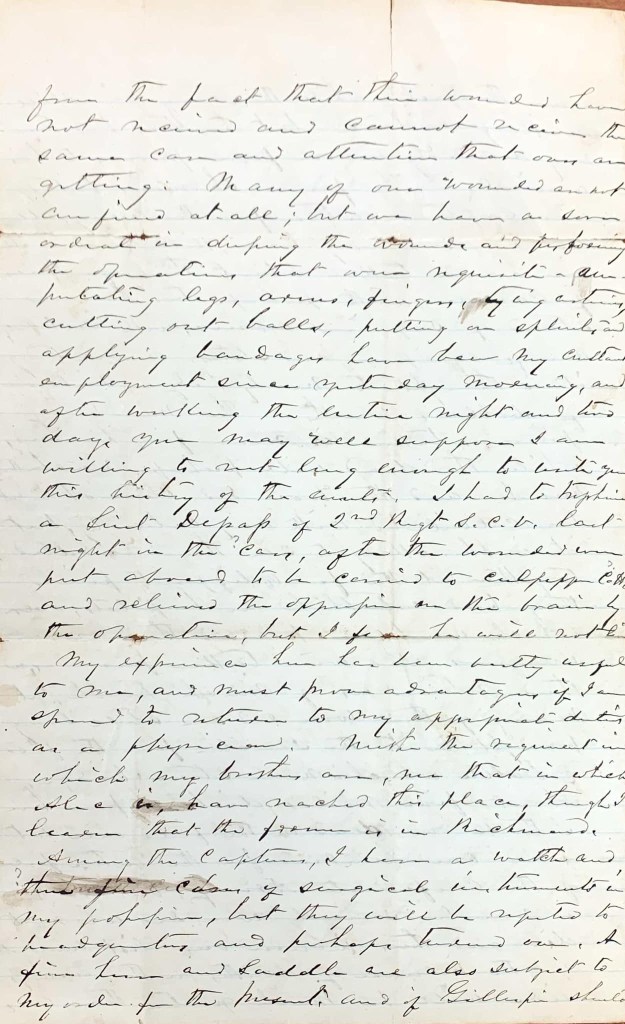 from the fact that their wounded have
not received and cannot receive the
same care and attention that ours are
getting. Many of our wounded are not
confined at all; but we have a severe
ordeal in dressing the wounds and performing
the operations that were requisite - am-
putating legs, arms, fingers, tying arteries,
cutting out balls, putting on splints and
applying bandages have been my constant
employment since yesterday morning, and
after working the entire night and two
days you may well suppose I am
willing to rest long enough to write you
this history of the results. I had to trephine
a Lieut Depass of 2nd Regt S. C. V. last
night in the cars, after the wounded were
put aboard to be carried to Culpepper C. H.
and relieved the oppression on the brain by
the operation, but I fear he will not live
My experience here has been vastly useful
to me, and must prove advantageous if I am
spared to return to my appropriate duties
as a physician. Neither the regiment in
which my brothers are, nor that in which
Alec is, have reached this place, though I
learn that the former is in Richmond.
Among the captures, I have a watch and
three fine cases of surgical instruments in
my possession, but they will be reported to
headquarters and perhaps turned over. A
fine horse and saddle are also subject to
my order for the present, and if Gillespie should